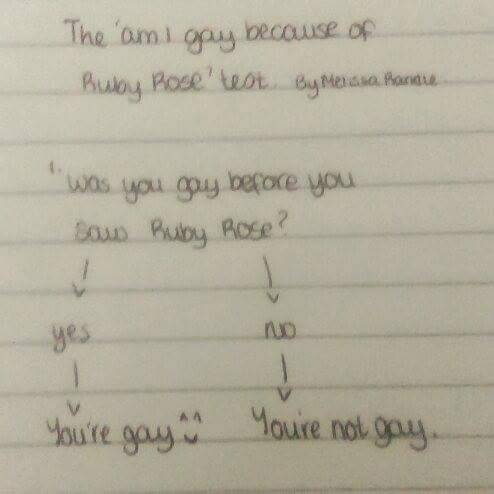 The 'am I gay because of
Ruby Rose' test. By Melissa
1. Was you gay before you
saw Ruby Rose?
yes no
You're gay ^^ You're not gay.